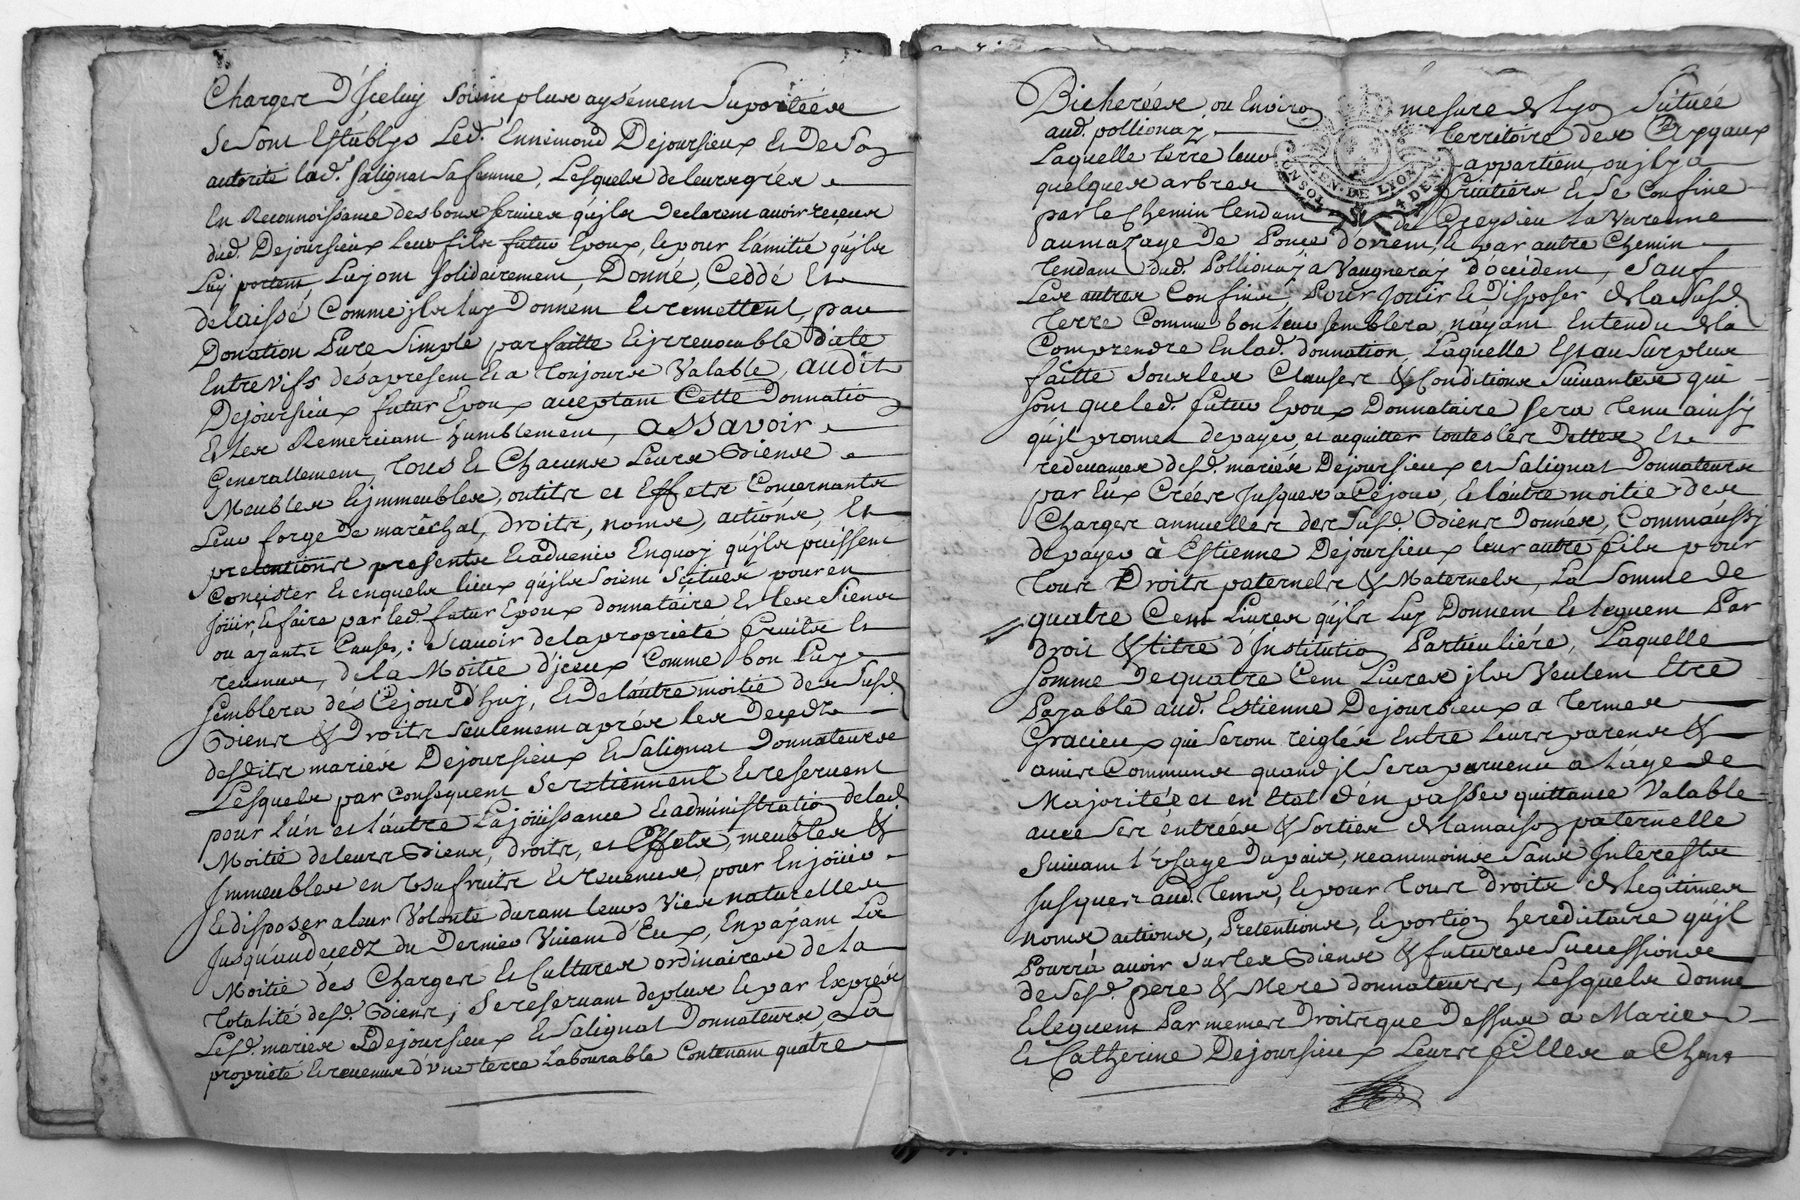 Charges D'Iceluy soient plus aysément Suportéés
Se Sont Establys Led. Ennemond Dejoursieux Et De Son
autorité lad. Salignat Sa femme, Lesquels de leurs grés
En Reconnoissance des bons services qu'jls Declarent avoir reçeus
dud. Dejoursieux leur fils futur Epoux, & pour l'amitié qu'jls
Luy portent, Luy ont solidairement, Donné, Ceddé Et
delaissé Comme jls luy Donnent & remettent, par
Donation Pure Simple parfaitte & jrrevocable d'ate
Entre Vifs dés a present & a toujours Valable, audit
Dejoursieux futur Epoux acceptant Cette Donnation
Et les Remerciant humblement, assavoir
Generallement, tous & Chacuns Leurs Biens
Meubles & jmmeubles, outils et Effets Concernants
Leur forge De maréchal, droits, noms, actions, Et
pretentions presents & advenir En quoy qu'jls puissent
Conçister & en quels lieux qu'jls soient scitués pour en
joüir, & faire par led. futur Epoux donnataire Et les Siens
ou ayants Causes, : Scavoir de la proprieté fruits Et
revenus, de la Moitié d'jceux Comme bon Luy
semblera dés Cejourd'huy, & de l'autre moitié des Susd.
Biens & Droits seulement aprés les Decedz
desdits mariés Dejoursieux & Salignat Donnateurs
Lesquels par Consequent Se retiennent & reservent
pour l'un et l'autre La joüissance & administration de lad.
Moitié de leurs Biens, droits, et Effets, meubles &
Immeubles en Usufruits & revenus, pour En joüir
& disposer a leur Volonté durant leurs Vies naturelles
Jusqu'au decedz du Dernier Vivant d'Eux, En payant La
Moitié des Charges & Cultures ordinaires de la
totalité desd. Biens ; Se reservant de plus & par Exprés
Lesd. mariés Dejoursieux & Salignat Donnateurs La
proprieté & revenus d'une terre Labourable Contenant quatre
Bicheréés ou Environ mesure de Lyon Scituéé
aud. pollionay territoire des
Laquelle terre leur appartient, ou jl y a
quelques arbres fruitiers & Se Confine
par le Chemin tendant de Greysieu La Varenne
au mazaye De Ponce d'orient, & par autre Chemin
tendant dud. Pollionay a Vaugneray d'occident, Sauf
Les autres Confins, Pour Joüir & Disposer de la Susd.
terre Comme bon leur semblera n'ayant Entendu de la
Comprendre En lad. donnation, Laquelle Est au Surplus
faitte sous les Clauses & Conditions Suivantes qui
sont que led. futur Epoux Donnataire Sera tenu ainsy
qu'jl promet de payer, et acquitter toutes les Dettes Et
redevances desd. mariés Dejoursieux et Salignat Donnateurs
par Eux Créés jusques a Cejour, & l'autre moitié des
Charges annuelles des Susd. Biens Donnés, Comm'aussj
de payer à Estienne Dejoursieux leur autre fils pour
tous Droits paternels & Maternels, La Somme de
quatre Cent Livres qu'jls Luy Donnent & leguent Par
droit & titre d'Institution Particuliére, Laquelle
somme De quatre Cent Livres jls Veulent Etre
Payable aud. Estienne Dejoursieux a termes
Gracieux qui seront reiglés Entre leurs parens &
amis Communs quand jl sera parvenu a L'age de
Majoritéé et en Etat d'en passer quittance Valable
avec Ses entréés & Sorties de la maison paternelle
Suivant l'Usage Du païs, neanmoins Sans Interests
Jusques aud. tems, & pour tous droits de Legitimes
noms actions, Pretentions, & portion hereditaire qu'jl
Pourrà avoir Sur les Biens & futures Successions
de Sesd. pere & Mere donnateurs, Lesquels donne
& leguent Par memes Droits que Dessus a Marie
& Catherine Dejoursieux Leurs filles a Chac
GEN. DE LYON